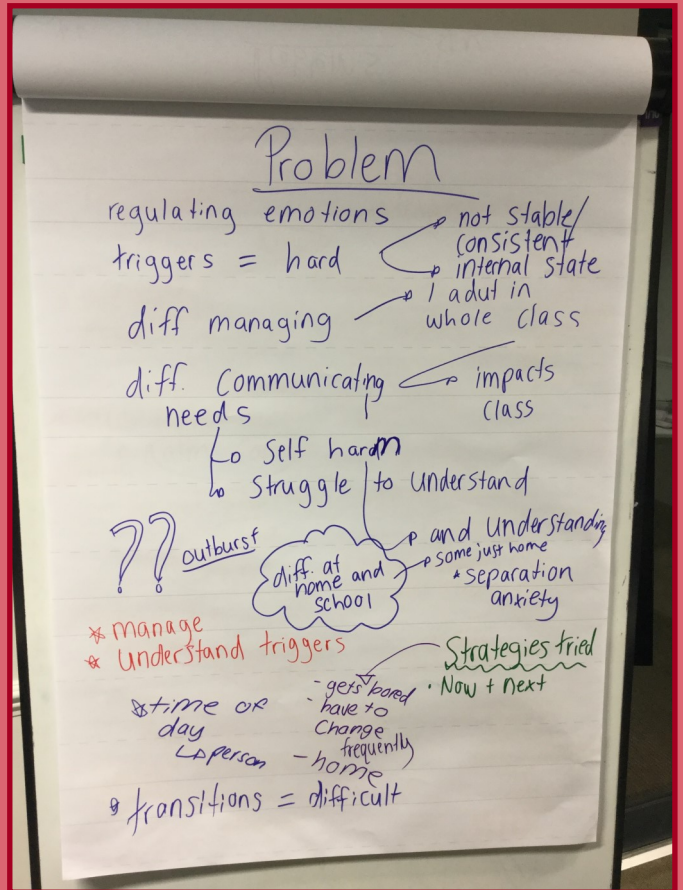 Problem
regulating emotions
triggers = hard
not stable/
consistent
internal state
diff managing
1 adut in
whole class
diff. Communicating
needs
impacts
class
Self harm
Struggle to understand
and understanding
?? outburst
diff. at
home and
school
some just home
* separation
anxiety
* manage
* understand triggers
Strategies tried
• Now + next
- gets bored
- have to
change
frequently
- home
* time of
day
person
* transitions = difficult